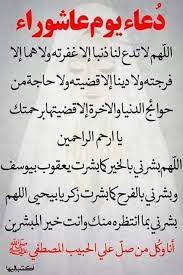 دُعاء يوم عاشوراء
اللّهم لا تدع لنا ذنبا إلا غفرته ولا هما إلا
فرجته ولا دينا إلا قضيته ولا حاجة من
حوائج الدنيا والاخرة إلا قضيتها برحمتك
يا ارحم الراحمين
اللهم بشرني بالخير كما بشرت يعقوب بيوسف
وبشرني بالفرح كما بشرت زكريا بيحيى اللهم
بشرني بما انتظره منك وانت خير المبشرين
أنا وكُل من صلّ علي الحبيب المصطفي ﷺ